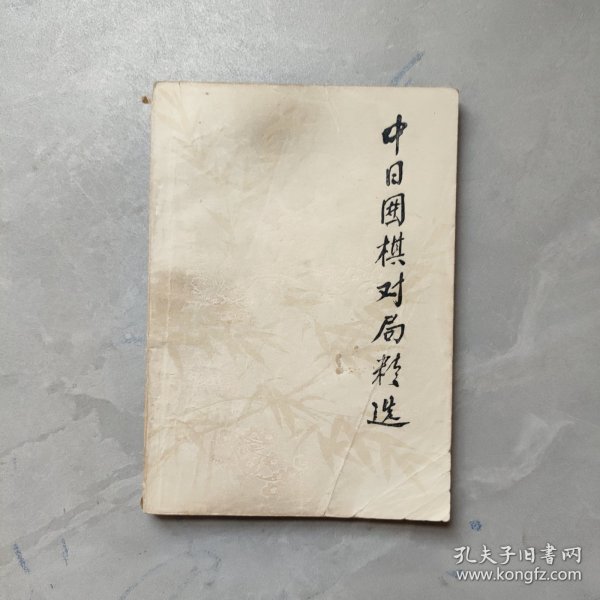 中日围棋对局精选
孔夫子旧書网
www.kongfz.com